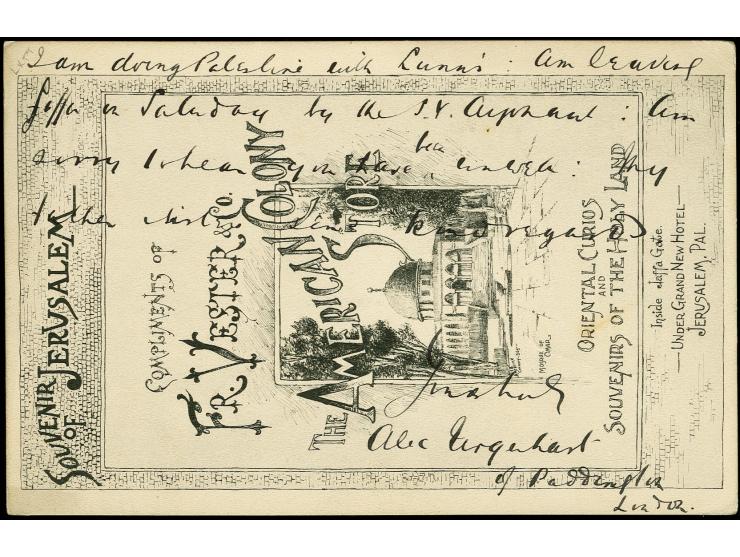 I am doing Palestine with Lunn's: Am leaving
Jaffa on Saturday by the S.Y. Argonaut: Am
sorry to hear you have been unwell: My
kind regards
Alec Urquhart
of Paddington
London.
SOUVENIR OF JERUSALEM
COMPLIMENTS OF
FR. VESTER & Co.
THE AMERICAN COLONY STORE
MOSQUE OF OMAR
ORIENTAL CURIOS
AND
SOUVENIRS OF THE HOLY LAND
Inside Jaffa Gate.
—UNDER GRAND NEW HOTEL—
JERUSALEM, PAL.